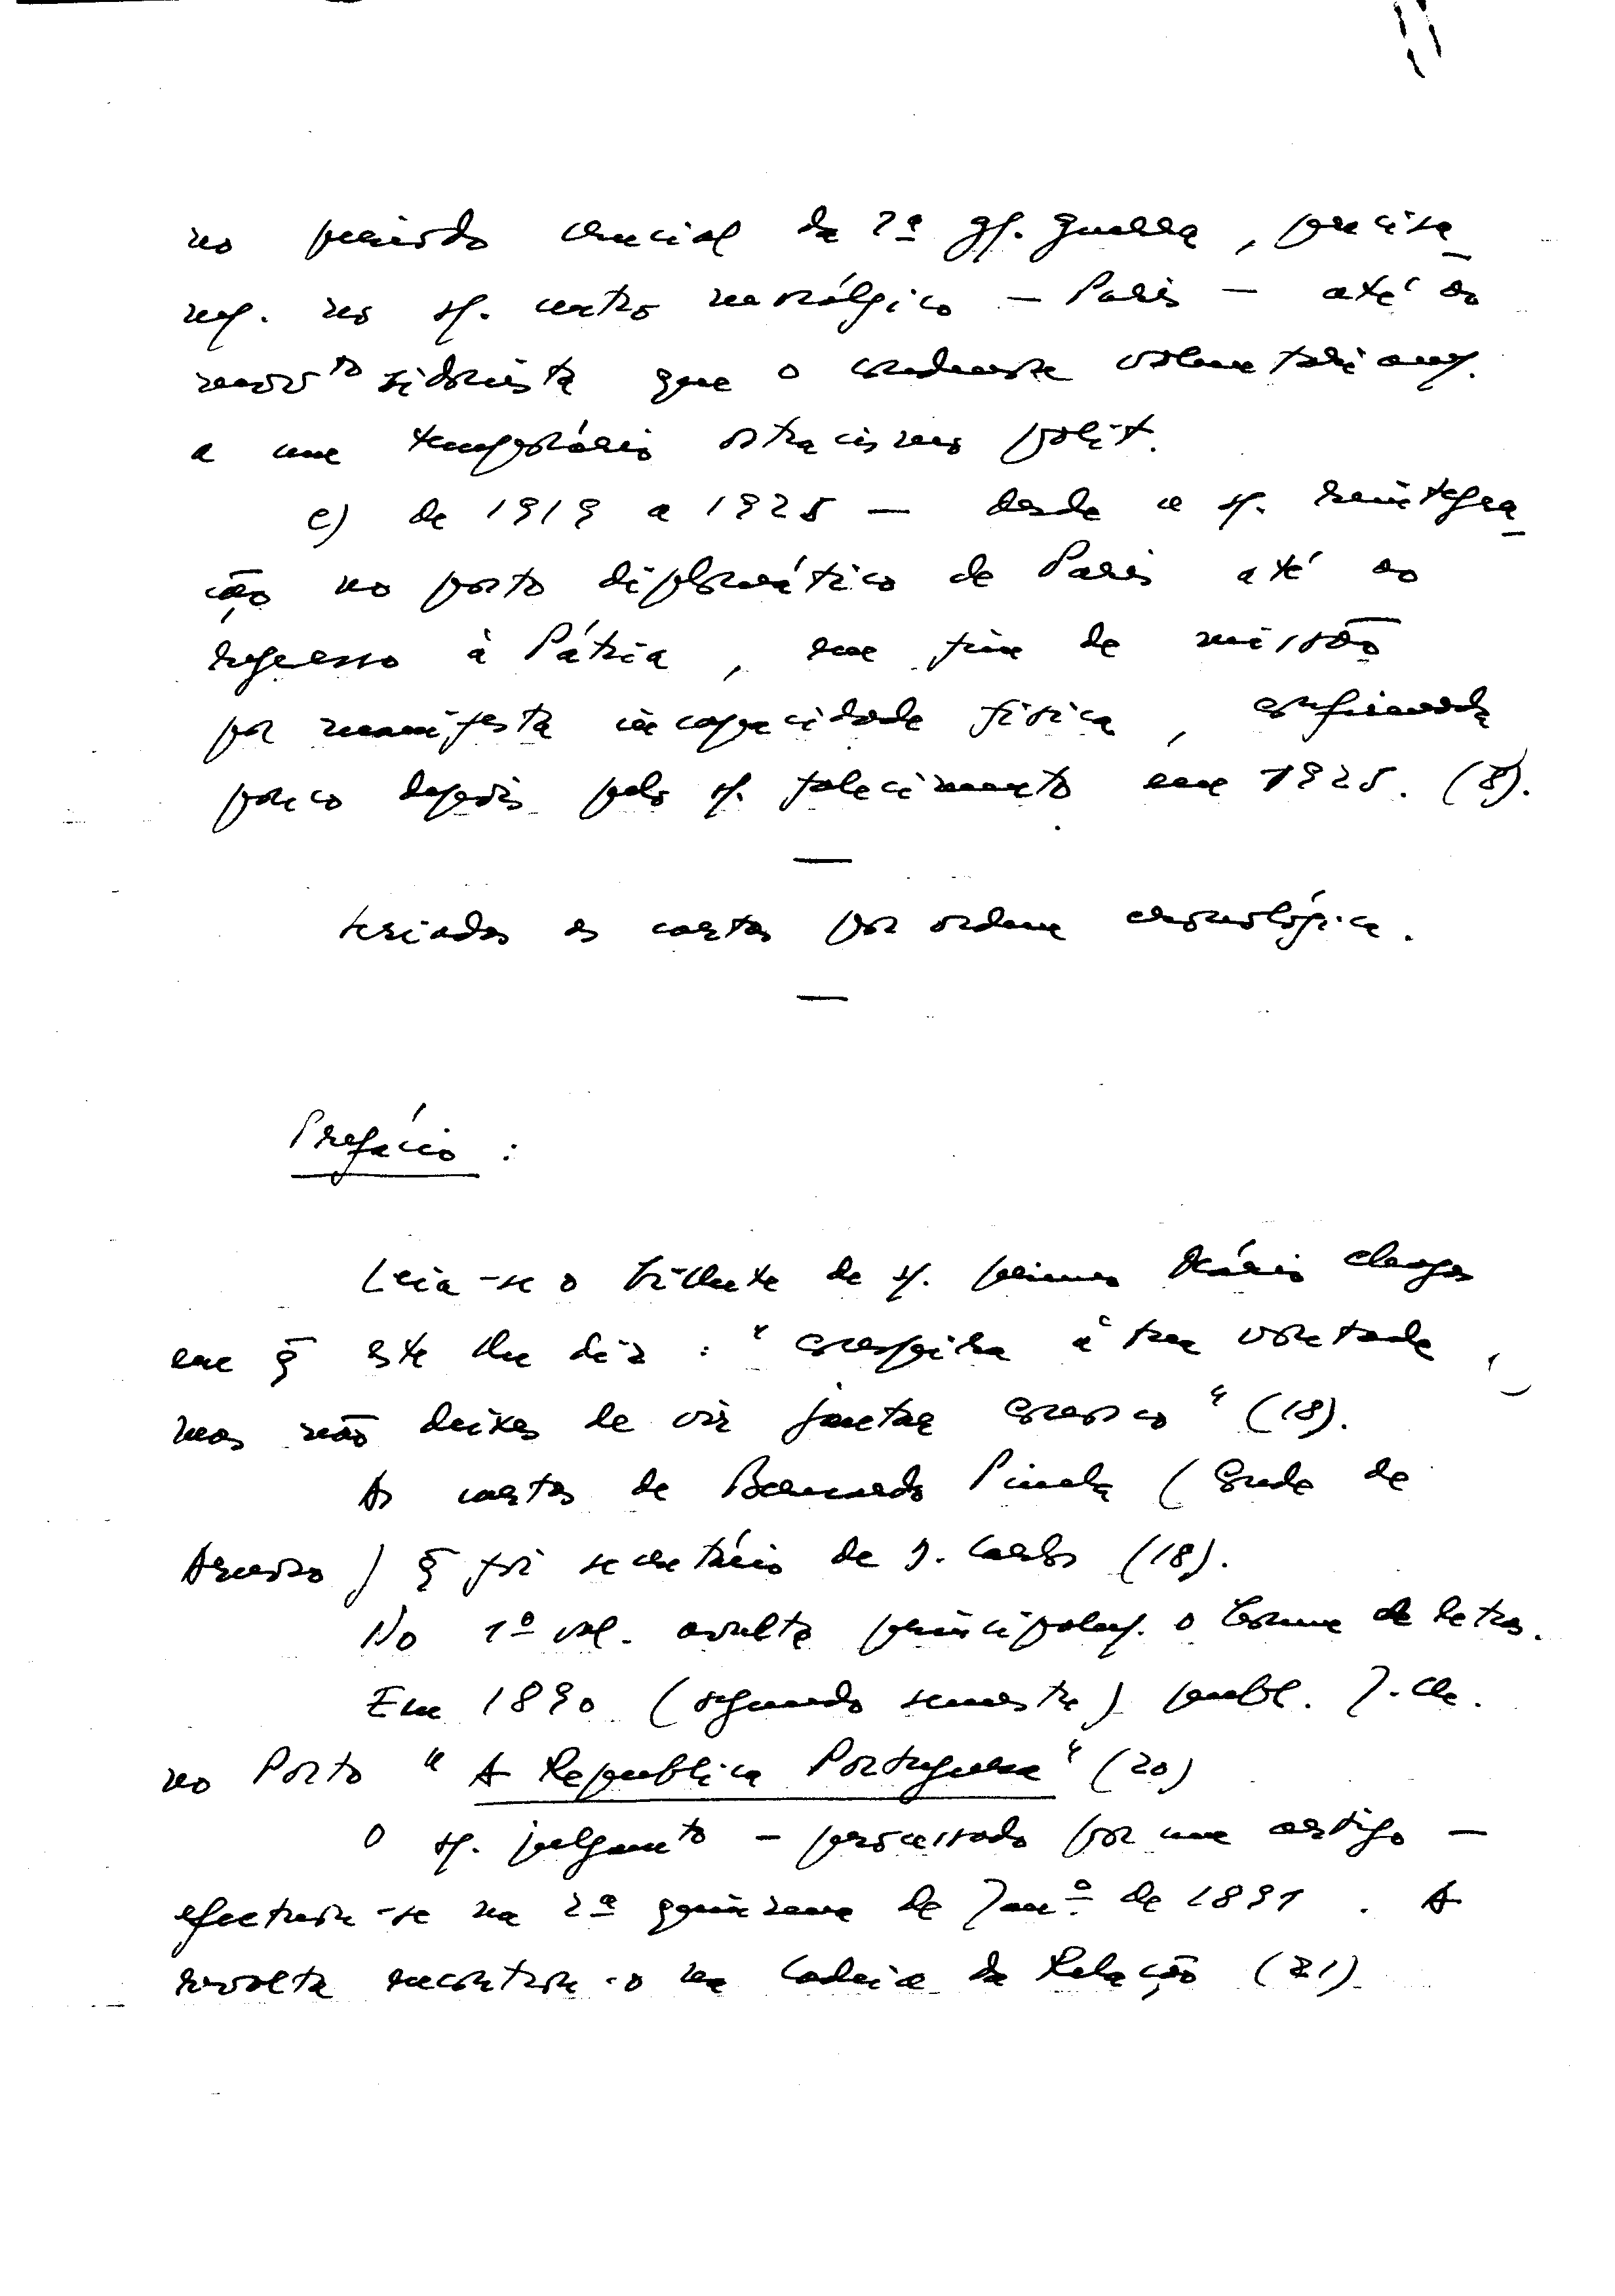 no período crucial da 1ª gr. guerra, precisa_
mt. no s/. centro nevrálgico — Paris — até ao
movto sidonista que o condenou voluntariamt.
a um temporário ostracismo polít.
e) de 1919 a 1925 — desde a s/. reintegra_
ção no posto diplomático de Paris até ao
regresso à Pátria, em fim de missão
por manifesta incapacidade física, confirmada
pouco depois pelo s/. falecimento em 1925. (8).
—
seriadas as cartas por ordem cronológica.
—
Prefácio :
Leia-se o bilhete de s/. primo Mário Chagas
em q̃ este lhe diz : "conspira à tua vontade,
mas não deixes de vir jantar connosco" (18).
As cartas de Bernardo Pindela (Conde de
Arnoso) q̃ foi secretário de D. Carlos (18).
No 1º vol. avulta principalmt. o homem de letras.
Em 1890 (segundo semestre) publ. J. Ch.
no Porto "A Republica Portuguesa" (20)
O s/. julgamto — processado por um artigo —
efectuou-se na 2ª quinzena de Janº de 1891. A
revolta encontrou-o na Cadeia da Relação (21).